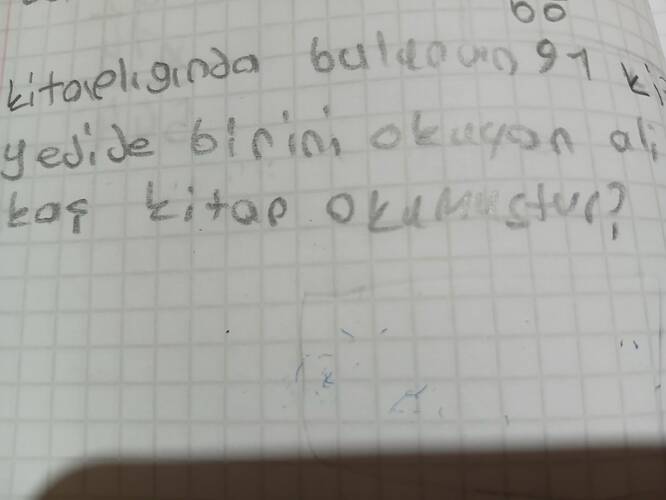 60
kitaplığında bulunan 91 ki
yedide birini okuyan ali
kaç kitap okumuştur?